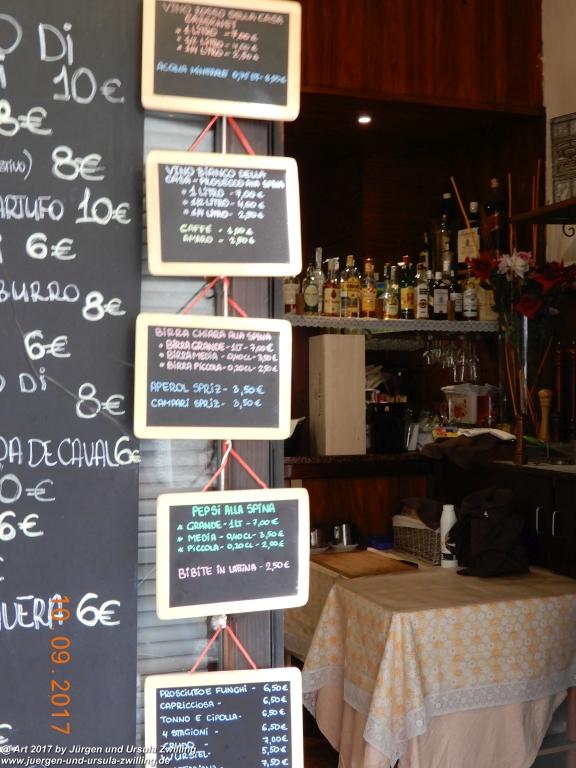 O DI
I 10€
8€
8€
ARTUFO 10€
I 6€
BURRO
8€
6€
O DI
8€
DA DE CAVAL 6€
0€
6€
6€
VINO ROSSO DELLA CASA
CABERNET
* 1 LITRO - 7,00€
* 1/2 LITRO - 4,00€
* 1/4 LITRO - 2,50€
ACQUA MINERALE 0,75 LT - 2,50€
VINO BIANCO DELLA
CASA - PROSECCO ALLA SPINA
* 1 LITRO - 7,00€
* 1/2 LITRO - 4,00€
* 1/4 LITRO - 2,50€
CAFFÈ - 1,00€
AMARO - 2,50€
BIRRA CHIARA ALLA SPINA
* BIRRA GRANDE - 1LT - 7,00€
* BIRRA MEDIA - 0,40CL - 3,50€
* BIRRA PICCOLA - 0,20CL - 2,50€
APEROL SPRIZ - 3,50€
CAMPARI SPRIZ - 3,50€
PEPSI ALLA SPINA
* GRANDE - 1LT - 7,00€
* MEDIA - 0,40CL - 3,50€
* PICCOLA - 0,20CL - 2,00€
BIBITE IN LATTINA - 2,50€
PROSCIUTTO E FUNGHI - 6,50€
CAPRICCIOSA - 6,50€
TONNO E CIPOLLA - 6,50€
4 STAGIONI - 6,50€
7,00€
WURSTEL - 5,50€
7,50€
10.09.2017
@ Art 2017 by Jürgen und Ursula Zwilling
www.juergen-und-ursula-zwilling.de